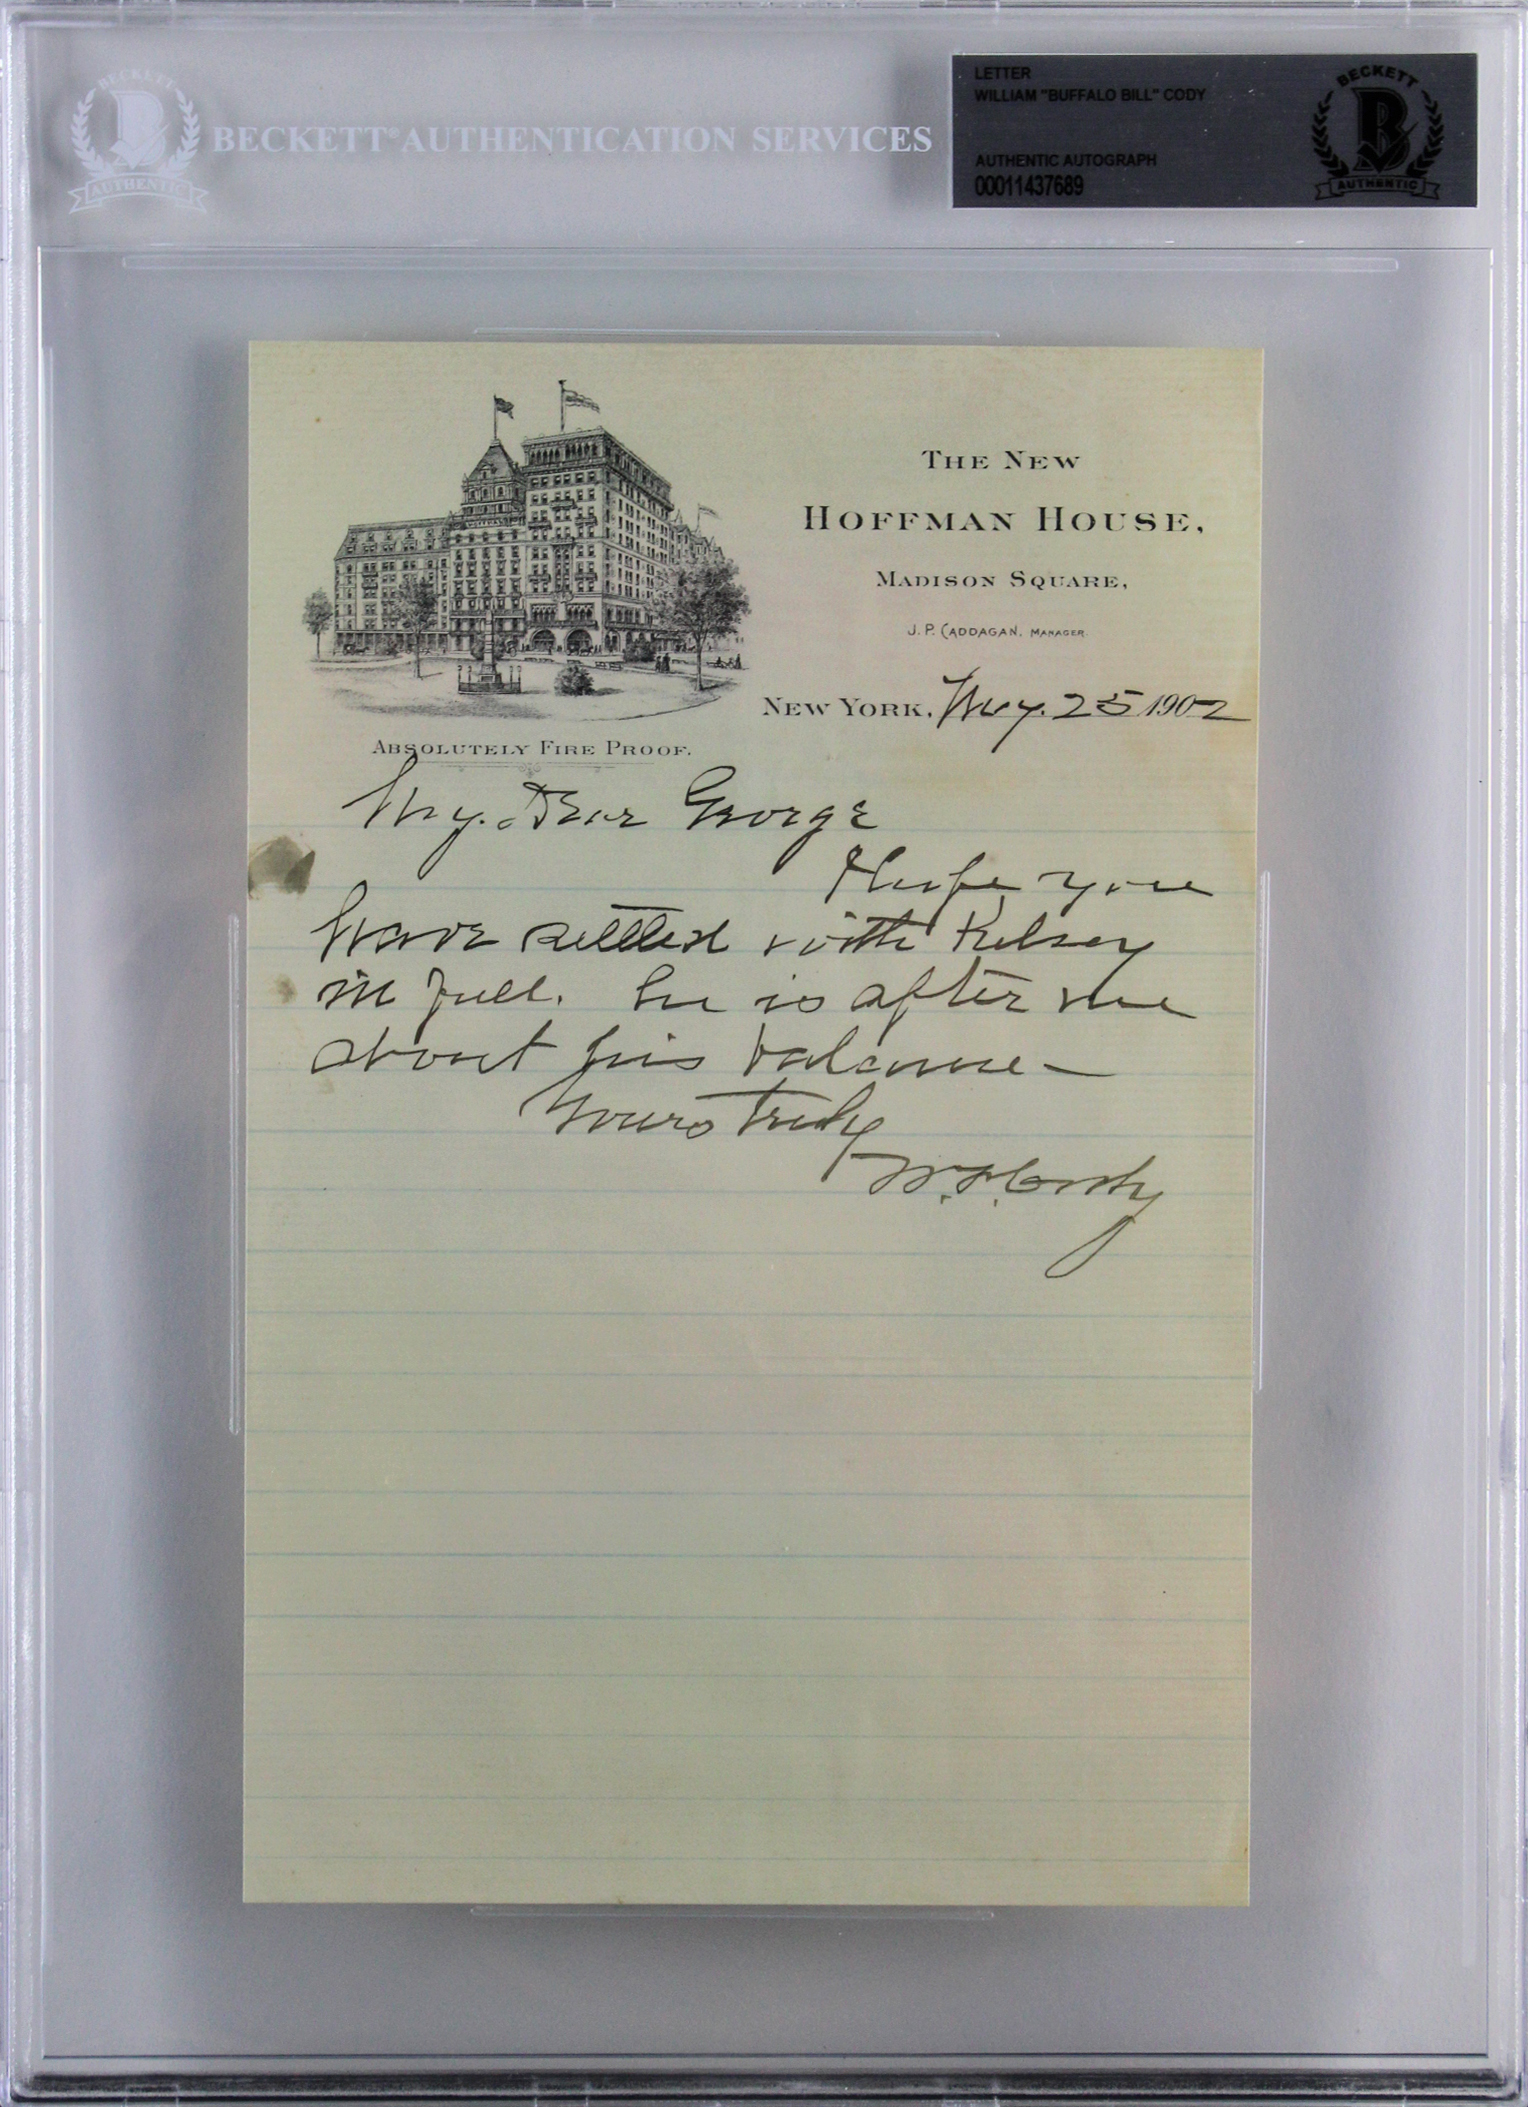 BECKETT
AUTHENTIC
BECKETT® AUTHENTICATION SERVICES
LETTER
WILLIAM "BUFFALO BILL" CODY
AUTHENTIC AUTOGRAPH
00011437689
BECKETT
AUTHENTIC
THE NEW
HOFFMAN HOUSE,
MADISON SQUARE,
J. P. CADDAGAN, MANAGER.
NEW YORK, May. 25 1902
ABSOLUTELY FIRE PROOF.
My. Dear George
Hope you
have settled with Kelsey
in full. he is after me
about his balance —
Yours truly
W. F. Cody